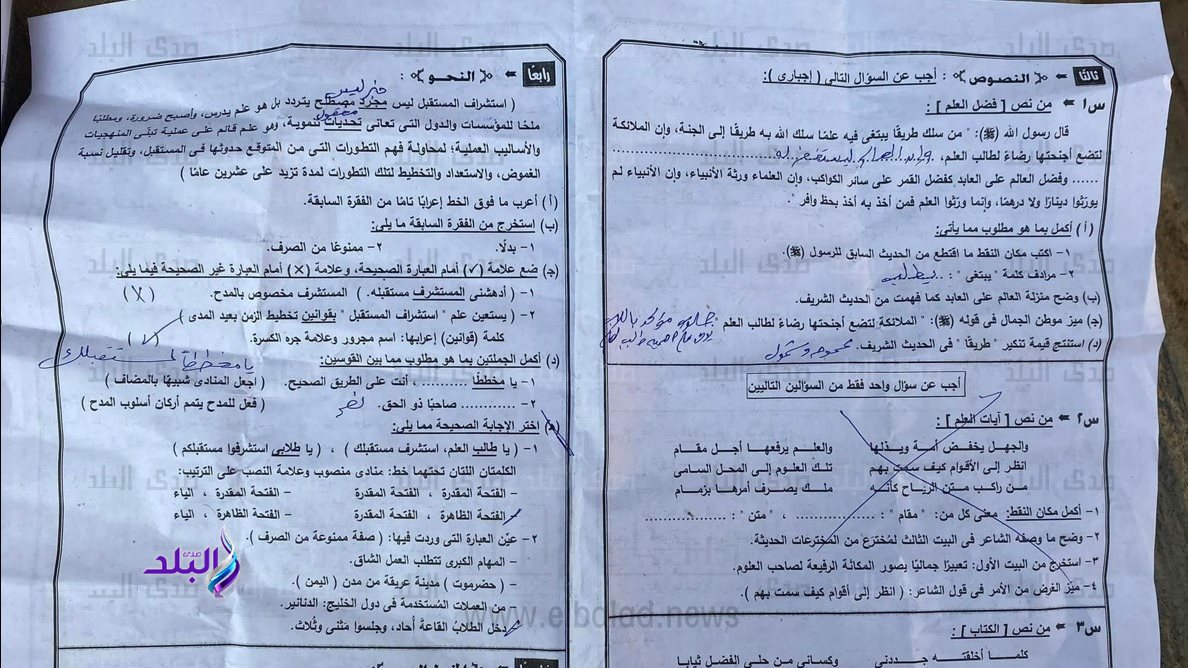 ثالثا ← ﴿النصوص﴾ : أجب عن السؤال التالى ( إجبارى ) :
س١ ← من نص [ فضل العلم ] :
قال رسول الله (ﷺ): " من سلك طريقًا يبتغى فيه علمًا سلك الله به طريقًا إلى الجنة، وإن الملائكة
لتضع أجنحتها رضاءً لطالب العلم،
...... وفضل العالم على العابد كفضل القمر على سائر الكواكب، وإن العلماء ورثة الأنبياء، وإن الأنبياء لم
يورثوا دينارًا ولا درهمًا، وإنما ورّثوا العلم فمن أخذ به أخذ بحظ وافر ".
( أ ) أكمل بما هو مطلوب مما يأتى:
١- اكتب مكان النقط ما اقتطع من الحديث السابق للرسول (ﷺ).
٢- مرادف كلمة " يبتغى " : .. يطلب
(ب) وضح منزلة العالم على العابد كما فهمت من الحديث الشريف.
(ج) ميز موطن الجمال فى قوله (ﷺ): " الملائكة لتضع أجنحتها رضاءً لطالب العلم "
(د) استنتج قيمة تنكير " طريقًا " فى الحديث الشريف. عموم وشمول
أجب عن سؤال واحد فقط من السؤالين التاليين
س٢ ← من نص [ آيات العلم ] :
والجهل يخفض أمة ويذلها والعلم يرفعها أجل مقام
انظر إلى الأقوام كيف سمت بهم تلك العلوم إلى المحل السامى
من راكب متن الرياح كأنه ملك يصرف أمرها بزمام
١- أكمل مكان النقط: معنى كل من: " مقام " : ................ ، " متن " : ................
٢- وضح ما وصفه الشاعر فى البيت الثالث لمُخترَع من المخترعات الحديثة.
٣- استخرج من البيت الأول: تعبيرًا جماليًا يصور المكانة الرفيعة لصاحب العلوم.
٤- ميّز الغرض من الأمر فى قول الشاعر : ( انظر إلى أقوام كيف سمت بهم ).
س٣ ← من نص [ الكتاب ] :
كلما أخلقته جددنى وكسانى من حلى الفضل ثيابا
رابعًا ← ﴿ النحو ﴾ :
خبر ليس
( استشراف المستقبل ليس مجرد مصطلح يتردد بل هو علم يدرس، وأصبح ضرورة، ومطلبًا
ملحًا للمؤسسات والدول التى تعانى تحديات تنموية، وهو علم قائم على عملية تبنّى المنهجيات
والأساليب العملية؛ لمحاولة فهم التطورات التى من المتوقع حدوثها فى المستقبل، وتقليل نسبة
الغموض، والاستعداد والتخطيط لتلك التطورات لمدة تزيد على عشرين عامًا )
( أ ) أعرب ما فوق الخط إعرابًا تامًا من الفقرة السابقة.
(ب) استخرج من الفقرة السابقة ما يلى:
١- بدلًا. ٢- ممنوعًا من الصرف.
(ج) ضع علامة (✓) أمام العبارة الصحيحة، وعلامة (×) أمام العبارة غير الصحيحة فيما يلى:
١- ( أدهشنى المستشرف مستقبله. ) المستشرف مخصوص بالمدح. (X)
٢- ( يستعين علم " استشراف المستقبل " بقوانين تخطيط الزمن بعيد المدى )
كلمة (قوانين) إعرابها: اسم مجرور وعلامة جره الكسرة. (✓)
(د) أكمل الجملتين بما هو مطلوب مما بين القوسين:
١- يا مخططًا .......... ، أنت على الطريق الصحيح. ( اجعل المنادى شبيهًا بالمضاف )
٢- ............ صاحبًا ذو الحق. ( فعل للمدح يتمم أركان أسلوب المدح )
(ه) اختر الإجابة الصحيحة مما يلى:
١- ( يا طالب العلم، استشرف مستقبلك ) ، ( يا طلابى استشرفوا مستقبلكم )
الكلمتان اللتان تحتهما خط: منادى منصوب وعلامة النصب على الترتيب:
– الفتحة المقدرة ، الفتحة المقدرة – الفتحة المقدرة ، الياء
– الفتحة الظاهرة ، الفتحة المقدرة – الفتحة الظاهرة ، الياء
٢- عيّن العبارة التى وردت فيها: ( صفة ممنوعة من الصرف ).
– المهام الكبرى تتطلب العمل الشاق.
– ( حضرموت ) مدينة عريقة من مدن ( اليمن ).
– من العملات المُستخدمة فى دول الخليج: الدنانير.
– دخل الطلابُ القاعةَ أُحاد، وجلسوا مثنى وثُلاث.
صدى البلد
www.elbalad.news